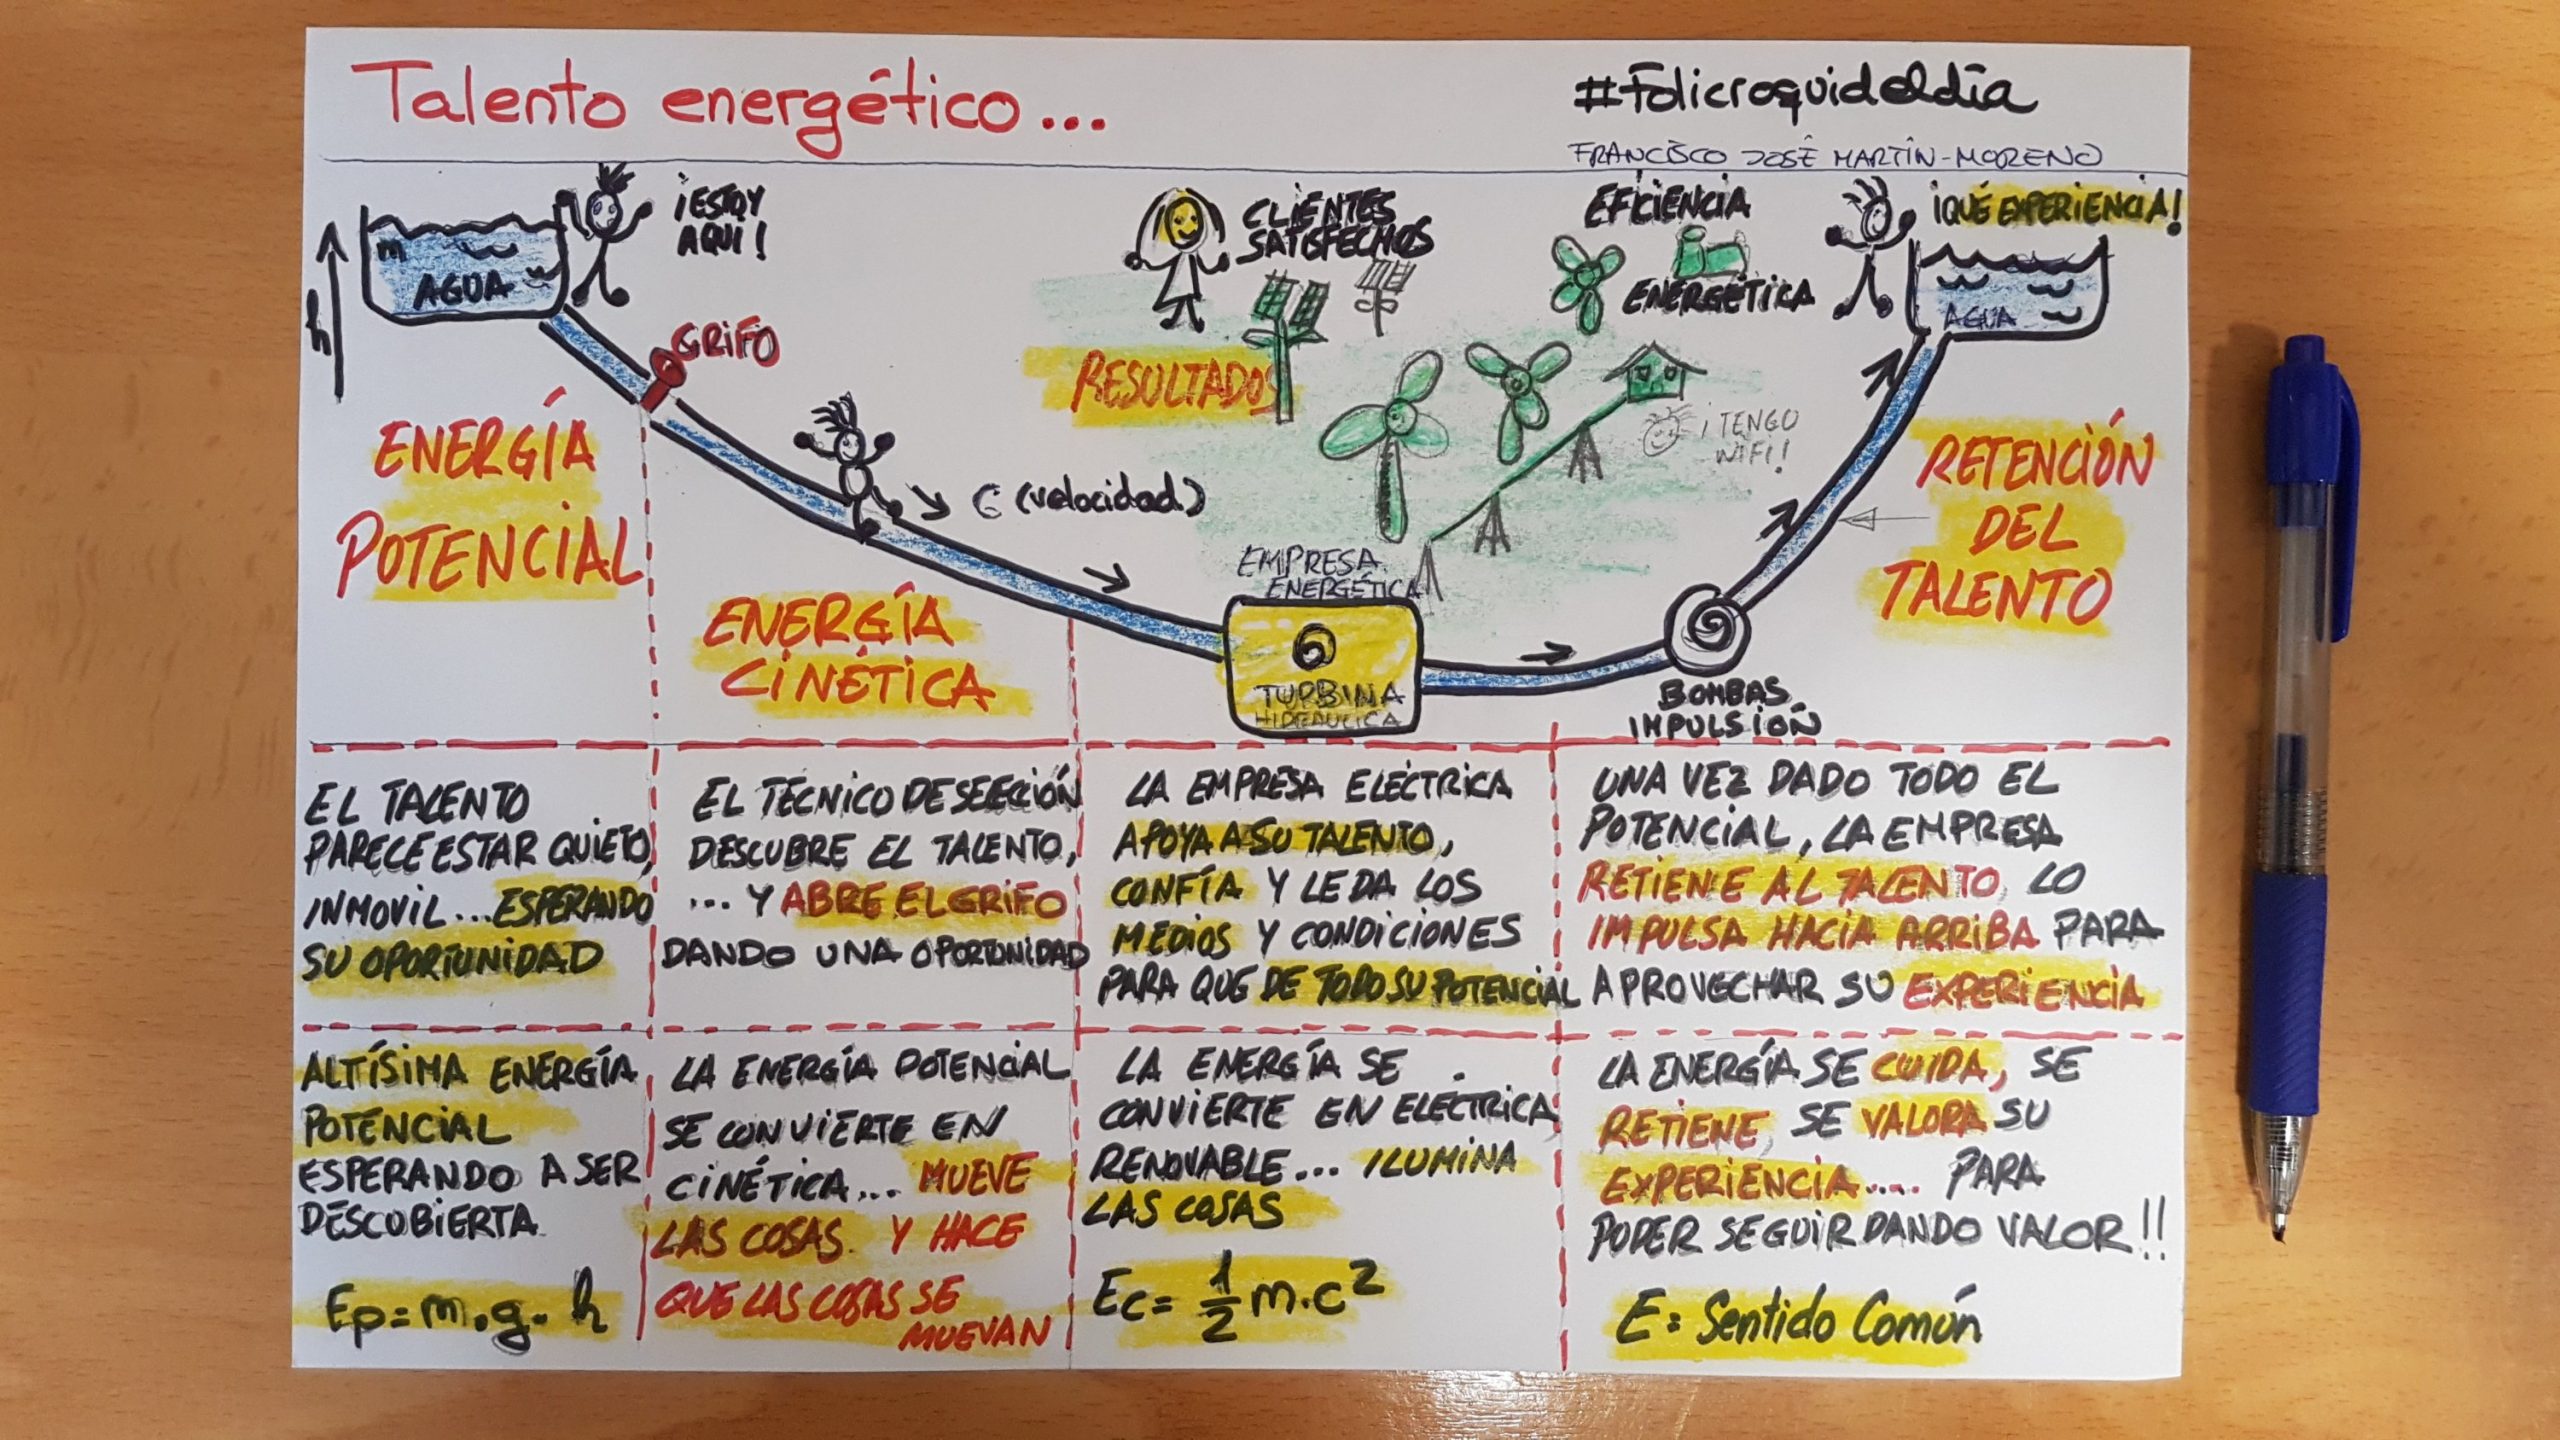 Talento energético...
#Folicroquideldía
FRANCISCO JOSÉ MARTÍN-MORENO
¡ESTOY
AQUÍ!
m
AGUA
h
GRIFO
ENERGÍA
POTENCIAL
C (velocidad)
ENERGÍA
CINÉTICA
CLIENTES
SATISFECHOS
RESULTADOS
EFICIENCIA
ENERGÉTICA
¡TENGO
WIFI!
EMPRESA
ENERGÉTICA
TURBINA
HIDRAULICA
BOMBAS
IMPULSIÓN
¡QUÉ EXPERIENCIA!
AGUA
RETENCIÓN
DEL
TALENTO
EL TALENTO
PARECE ESTAR QUIETO,
INMOVIL...ESPERANDO
SU OPORTUNIDAD
EL TÉCNICO DE SELECCIÓN
DESCUBRE EL TALENTO,
... Y ABRE EL GRIFO
DANDO UNA OPORTUNIDAD
LA EMPRESA ELÉCTRICA
APOYA A SU TALENTO,
CONFÍA Y LE DA LOS
MEDIOS Y CONDICIONES
PARA QUE DE TODO SU POTENCIAL
UNA VEZ DADO TODO EL
POTENCIAL, LA EMPRESA
RETIENE AL TALENTO, LO
IMPULSA HACIA ARRIBA PARA
APROVECHAR SU EXPERIENCIA
ALTÍSIMA ENERGÍA
POTENCIAL
ESPERANDO A SER
DESCUBIERTA.
Ep=m.g.h
LA ENERGÍA POTENCIAL
SE CONVIERTE EN
CINÉTICA... MUEVE
LAS COSAS. Y HACE
QUE LAS COSAS SE
MUEVAN
LA ENERGÍA SE
CONVIERTE EN ELÉCTRICA
RENOVABLE... ILUMINA
LAS COSAS
Ec= 1/2 m.c²
LA ENERGÍA SE CUIDA, SE
RETIENE, SE VALORA SU
EXPERIENCIA.... PARA
PODER SEGUIR DANDO VALOR!!
E= Sentido Común